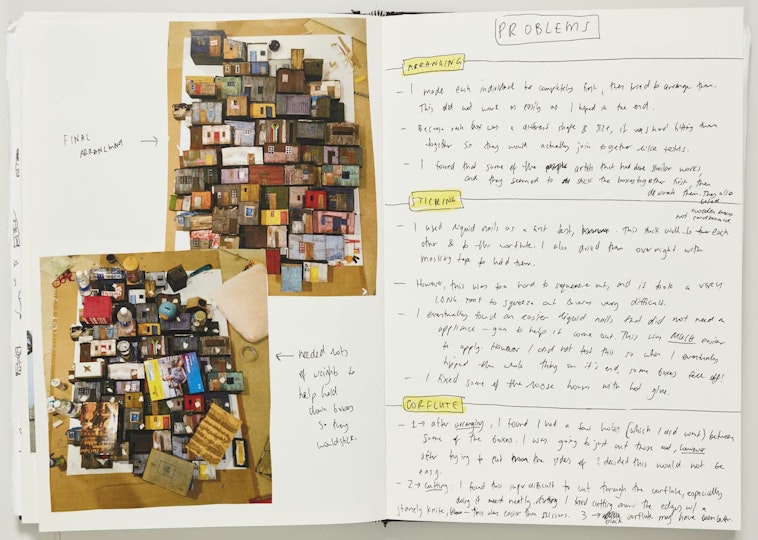 FINAL
ARRANGMENT
needed lots
of weights to
help hold
down boxes
so they
would stick.
PROBLEMS
ARRANGING
- I made each individual box completely first, then tried to arrange them.
This did not work as easily as I hoped in the end.
- Because each box was a different shape & size, it was hard fitting them
together so they would actually join together like tetris.
- I found that some of the artists that had done similar works,
and they seemed to stick the boxes together first, then
decorate them. They also
used
wooden boxes
not cardboard
STICKING
- I used liquid nails as a first test, this stuck well to each
other & to the corflute. I also dried them overnight with
masking tape to hold them.
- However, this was too hard to squeeze out, and it took a VERY
LONG time to squeeze out & was very difficult.
- I eventually found an easier liquid nails that did not need a
appliance - gun to help it come out. This was MUCH easier
to apply. However I did not test this so when I eventually
tipped the whole thing on it's end, some boxes fell off!
- I fixed some of the loose houses with hot glue.
CORFLUTE
- 1 → after arranging, I found I had a few holes (which I did want) between
some of the boxes. I was going to just cut these out, however
after trying to cut the sides off I decided this would not be
easy.
- 2 → cutting: I found this super difficult to cut through the corflute, especially
doing it neatly. I tried cutting around the edges w/ a
stanely knife, this was easier than scissors. 3 → black corflute may have been better.